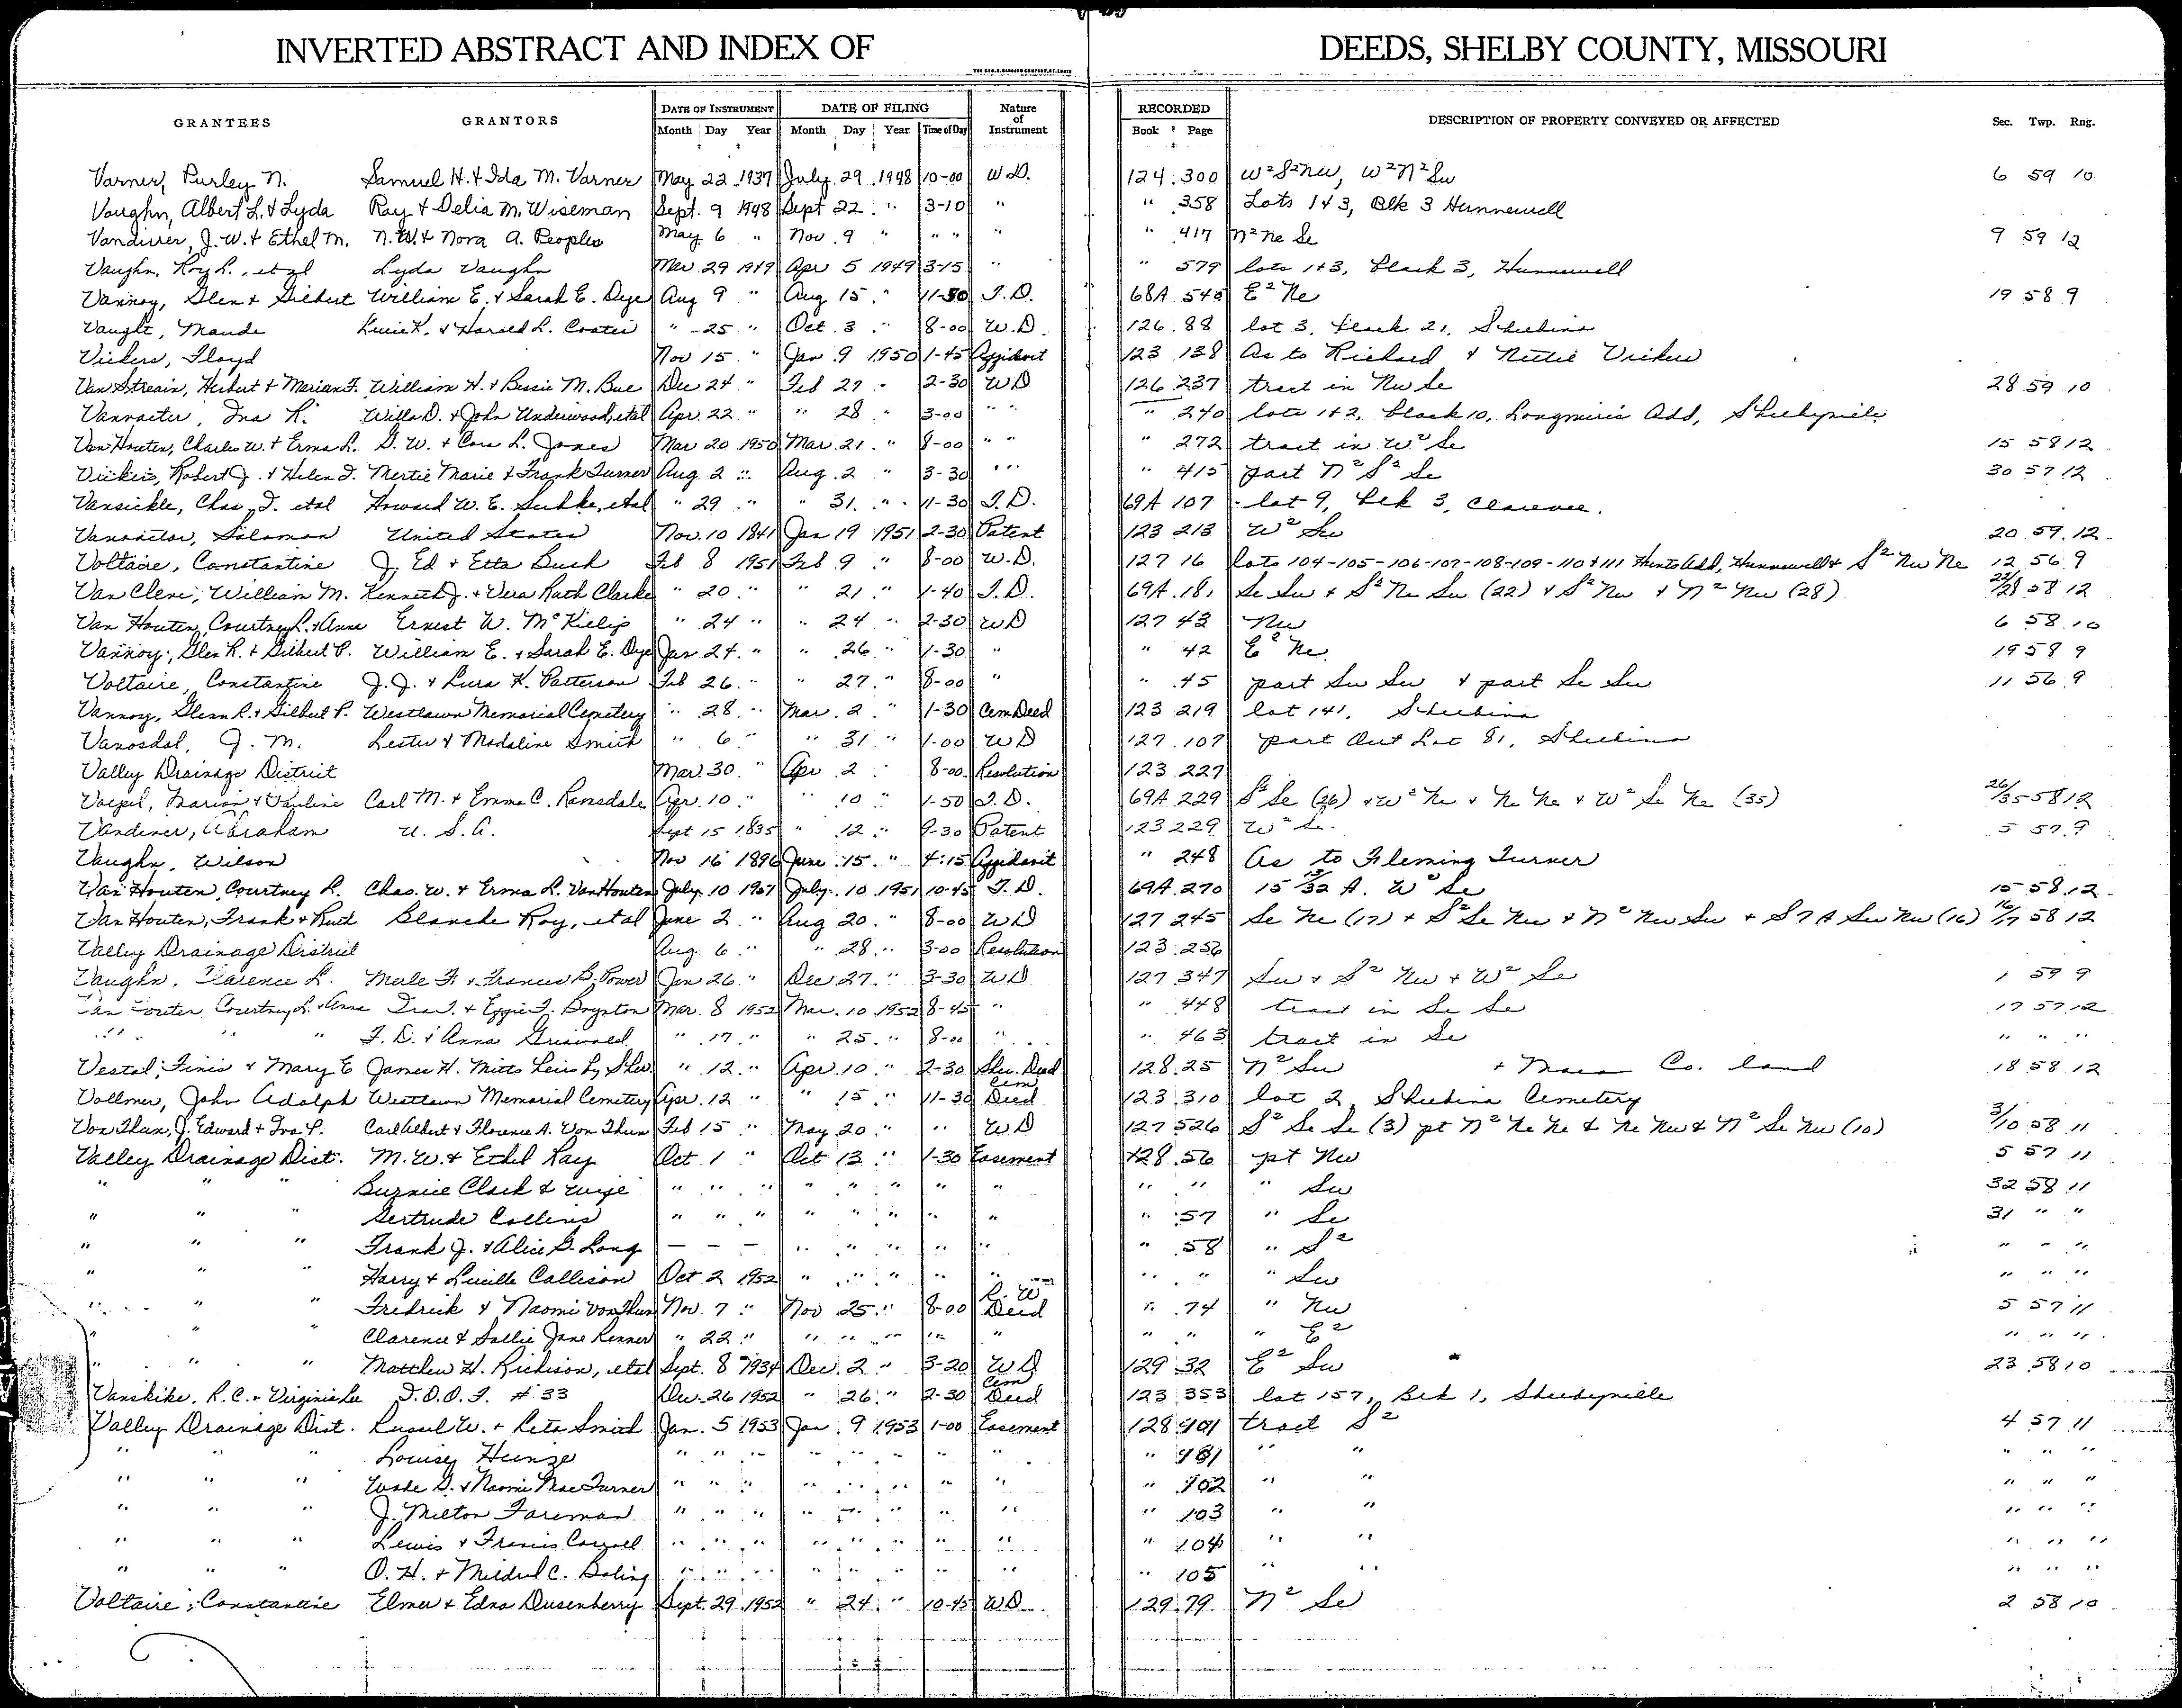 INVERTED ABSTRACT AND INDEX OF DEEDS, SHELBY COUNTY, MISSOURI
DATE OF INSTRUMENT DATE OF FILING Nature of Instrument RECORDED
GRANTEES GRANTORS Month Day Year Month Day Year Time of Day Book Page DESCRIPTION OF PROPERTY CONVEYED OR AFFECTED Sec. Twp. Rng.
Varner, Purley N. Samuel H. & Ida M. Varner May 22 1937 July 29 1948 10-00 W.D. 124 300 W² S² NW, W² N² SW 6 59 10
Vaughn, Albert L. & Lyda Ray & Delia M. Wiseman Sept. 9 1948 Sept 22 " 3-10 " " 358 Lots 1 & 3, Blk 3 Hunnewell
Vandiver, J. W. & Ethel M. N. W. & Nora A. Peoples May 6 " Nov. 9 " " " " " 417 N² Ne Se 9 59 12
Vaughn, Roy L., etal Lyda Vaughn Mar 29 1949 Apr 5 1949 3-15 " " 579 lots 1 & 3, block 3, Hunnewell
Vannoy, Glen & Gilbert William E. & Sarah E. Dye Aug 9 " Aug 15 " 11-50 T.D. 68A 545 E² Ne 19 58 9
Vaught, Maude & Harold L. Coates " 25 " Oct. 3 " 8-00 W.D. 126 88 lot 3, block 21, Shelbina
Vickers, Floyd Nov 15 " Jan 9 1950 1-45 Affidavit 123 138 As to Richard & Nettie Vickers
Van Streain, Hubert & Marian F. William H. & Bessie M. Bue Dec 24 " Feb 27 " 2-30 WD 126 237 tract in Nw Se 28 59 10
Vannater, Ina R. Willa D. & John Underwood, etal Apr. 22 " " 28 " 3-00 " " " 240 lots 1 & 2, block 10, Longmires Add, Shelbyville
Van Houten, Charles W. & Erma L. G. W. & Cora L. Jones Mar 20 1950 Mar. 21 " 8-00 " " " 272 tract in W² Se 15 58 12
Vickers, Robert J. & Helen I. Mertie Marie & Frank Turner Aug 2 " Aug. 2 " 3-30 " " " 415 part N² S² Se 30 57 12
Vansickle, Chas. T. etal Howard W. E. etal " 29 " " 31 " 11-30 T.D. 69A 107 lot 9, Blk 3, Clarence.
Solomon United States Nov. 10 1841 Jan 19 1951 2-30 Patent 123 213 W² Sw 20 59 12
Voltaire, Constantine J. Ed & Etta Bush Feb 8 1951 Feb 9 " 8-00 W.D. 127 16 lots 104-105-106-107-108-109-110 & 111 Hunts Add, Hunnewell & S² Nw Ne 12 56 9
Van Cleve, William M. Kenneth J. & Vera Ruth Clarke " 20 " " 21 " 1-40 T.D. 69A 181 Se Sw & S² Ne Sw (22) & S² Nw & N² Nw (28) 22/28 58 12
Van Houten, Courtney L. & Anna Ernest W. McKilip " 24 " " 24 " 2-30 WD 127 43 Nw 6 58 10
Vannoy, Glen R. & Gilbert P. William E. & Sarah E. Dye Jan 24 " " 26 " 1-30 " " 42 E² Ne 19 58 9
Voltaire, Constantine J. J. & Lura K. Patterson Feb 26 " " 27 " 8-00 " " 45 part Sw Sw & part Se Sw 11 56 9
Vannoy, Glenn R. & Gilbert P. Westlawn Memorial Cemetery " 28 " Mar. 2 " 1-30 Cem Deed 123 219 lot 141, Shelbina
Vanosdol, J. M. Lester & Madaline Smith " 6 " " 31 " 1-00 WD 127 107 part Out Lot 81, Shelbina
Valley Drainage District Mar. 30 " Apr 2 " 8-00 Resolution 123 227
Marion & Pauline Carl M. & Emma C. Ransdale Apr. 10 " " 10 " 1-50 T.D. 69A 229 S² Se (26) & W² Ne & Ne Ne & W² Se Ne (35) 26/35 58 12
Vandiver, Abraham U. S. A. Sept 15 1835 " 12 " 9-30 Patent 123 229 W² Se. 5 57 9
Vaughn, Wilson Nov 16 1896 June 15 " 4:15 Affidavit " 248 As to Fleming Turner
Van Houten, Courtney L. Chas. W. & Erma L. Van Houten July 10 1951 July 10 1951 10-45 T.D. 69A 270 15 15/32 A. W² Se 15 58 12
Van Houten, Frank & Ruth Blanche Ray, etal June 2 " Aug 20 " 8-00 WD 127 245 Se Ne (17) & S² Se Nw & N² Nw Sw & S 7 A Sw Nw (16) 16/17 58 12
Valley Drainage District Aug. 6 " " 28 " 3-00 Resolution 123 256
Vaughn, Clarence L. Merle F. & Frances B. Power Jan 26 " Dec 27 " 3-30 WD 127 347 Sw & S² Nw & W² Se 1 59 9
Van Houten Courtney L. & Anna Ira J. & Effie J. Boynton Mar. 8 1952 Mar. 10 1952 8-45 " " 448 tract in Se Se 17 57 12
" " " F. D. & Anna Griswold " 17 " " 25 " 8-00 " " 463 tract in Se " " "
Vestal, Finis & Mary E James H. Mitts heirs by Sher " 12 " Apr. 10 " 2-30 Sher. Deed 128 25 N² Sw & Macon Co. land 18 58 12
Vollmer, John Adolph Westlawn Memorial Cemetery Apr. 12 " " 15 " 11-30 Cem Deed 123 310 lot 2 Shelbina Cemetery
Von Thun, J. Edward & Iva P. Carl Albert & Florence A. Von Thun Feb 15 " May 20 " " WD 127 526 S² Se Se (3) pt N² Ne Ne & Ne Nw & N² Se Nw (10) 3/10 58 11
Valley Drainage Dist. M. W. & Ethel Ray Oct 1 " Oct 13 " 1-30 Easement 128 56 pt Nw 5 57 11
" " " Burnice Clark & wife " " " " " " " " " " " Sw 32 58 11
" " " Gertrude Collins " " " " " " " " " 57 " Se 31 " "
" " " Frank J. & Alice G. Long — — — " " " " " " 58 " S² " " "
" " " Harry & Lucille Callison Oct 2 1952 " " " " " " " " Sw " " "
" " " Fredrick & Naomi VonThun Nov. 7 " Nov 25 " 8-00 R. W. Deed " 74 " Nw 5 57 11
" " " Clarence & Sallie Jane Renner " 22 " " " " " " " " " E² " " "
" " " Matthew H. Richison, etal Sept. 8 1934 Dec. 2 " 3-20 WD 129 32 E² Sw 23 58 10
Vanskike, R. C. & Virginia Lee I.O.O.F. #33 Dec. 26 1952 " 26 " 2-30 Cem Deed 123 353 lot 157, Blk 1, Shelbyville
Valley Drainage Dist. Russel W. & Leta Smith Jan. 5 1953 Jan. 9 1953 1-00 Easement 128 101 tract S² 4 57 11
" " " Louise Heinze " " " " " " " " " 101 " " " " "
" " " Wade D. & Naomi Mae Turner " " " " " " " " " 102 " " " " "
" " " J. Milton Foreman " " " " " " " " " 103 " " " " "
" " " Lewis & Francis " " " " " " " " " 104 " " " " "
" " " O. H. & Mildred C. " " " " " " " " " 105 " " " " "
Voltaire, Constantine Elmer & Edna Dusenberry Sept. 29 1952 " 24 " 10-45 WD 129 79 N² Se 2 58 10